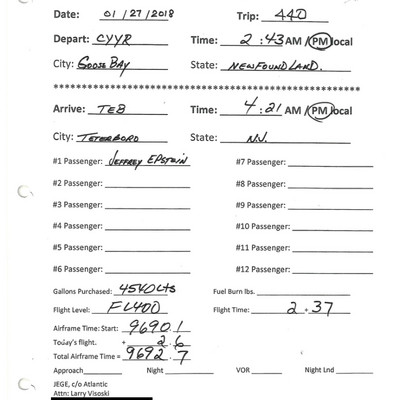 Date: 01/27/2018 Trip: 440
Depart: CYYR Time: 2:43 AM / PM local
City: Goose Bay State: NEWFOUNDLAND.
****************************************
Arrive: TEB Time: 4:21 AM / PM local
City: TETERBORO State: NJ.
#1 Passenger: JEFFREY EPSTEIN #7 Passenger:
#2 Passenger: #8 Passenger:
#3 Passenger: #9 Passenger:
#4 Passenger: #10 Passenger:
#5 Passenger: #11 Passenger:
#6 Passenger: #12 Passenger:
Gallons Purchased: 4540 Lts Fuel Burn lbs.
Flight Level: FL400 Flight Time: 2 + 37
Airframe Time: Start: 9690.1
Today's flight. + 2.6
Total Airframe Time = 9692.7
Approach Night VOR Night Lnd
JEGE, c/o Atlantic
Attn: Larry Visoski